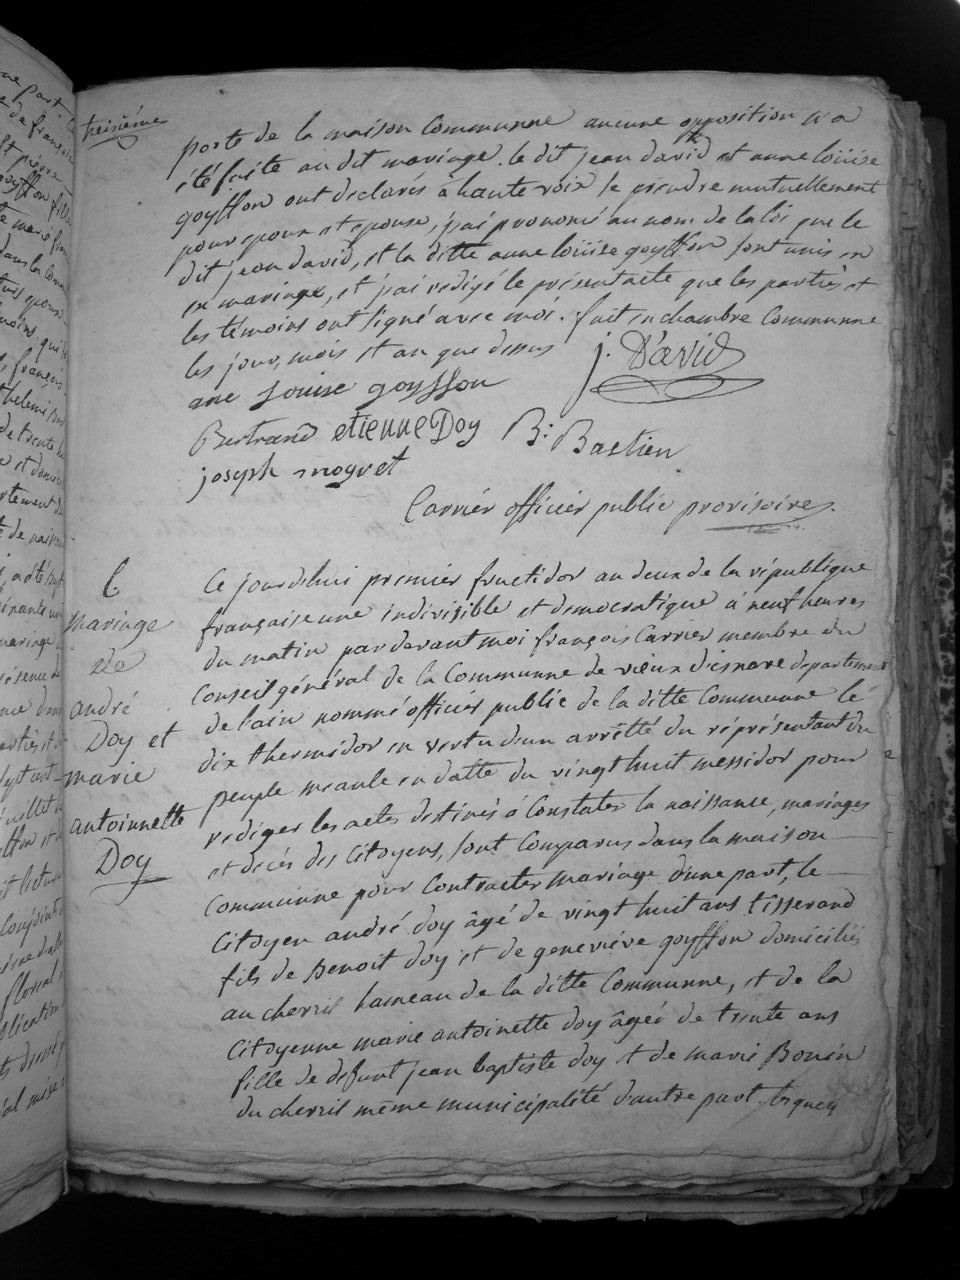 treisième
porte de la maison Communne aucune opposition n'a
été faite au dit mariage. le dit jean david et anne loüise
goyffon ont declarés à haute voix se prendre mutuellement
pour epoux et epouse, j'ai prononcé au nom de la loi que le
dit jean david, et la ditte anne loüise goyffon sont unis en
en mariage, et j'ai redigé le present acte que les partiés et
les témoins ont signé avec moi. fait en chambre Communne
les jour, mois et an que dessus j. David
ane Louise goyffon
Bertrand etienne Doy B: Bastien
joseph mogret
Carrier officier public provisoire.
6
Mariage
de
andré
Doy et
marie
antoinnette
Doy
Ce jourdhui premier fructidor an deux de la république
française une indivisible et democratique à neuf heures
du matin par devant moi françois Carrier membre du
Conseil général de la Communne de vieux d'isnave departement
de lain nommé officier public de la ditte Communne le
dix thermidor en vertu d'un arrêtté du réprésentant du
peuple meaule en datte du vingt huit messidor pour
rediger les actes destinés à Constater la naissance, mariages
et décés des Citoyens, sont Comparus dans la maison
Communne pour Contracter mariage d'une part, le
Citoyen andré doy âgé de vingt huit ans tisserand
fils de Benoit doy et de geneviéve goyffon domiciliés
au cherril hameau de la ditte Communne, et de la
Citoyenne marie antoinette doy âgéé de trente ans
fille de defunt jean baptiste doy et de marie Bonin
du cherril même municipalité d'autre part. lesquels